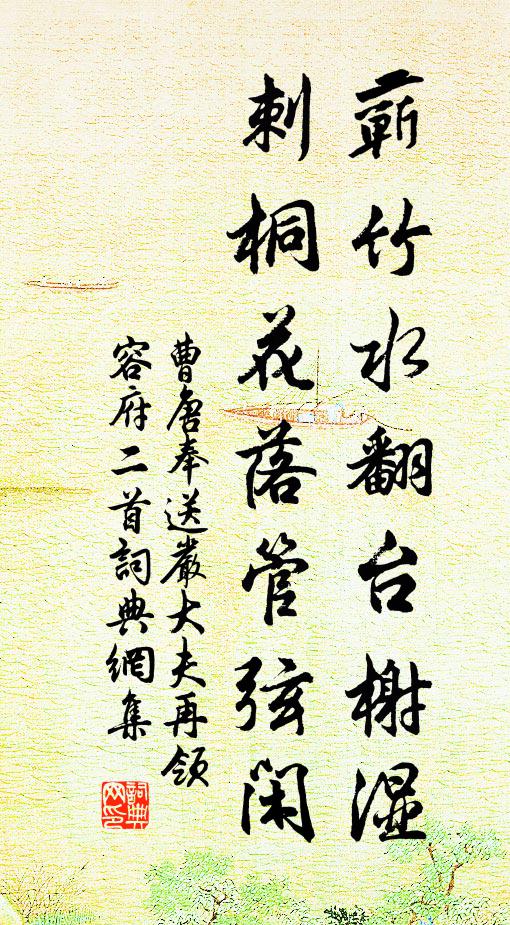 蘄竹水翻台榭湿
刺桐花落管弦闲
曹唐奉送嚴大夫再領
容府二首詞典網集
詞典网印